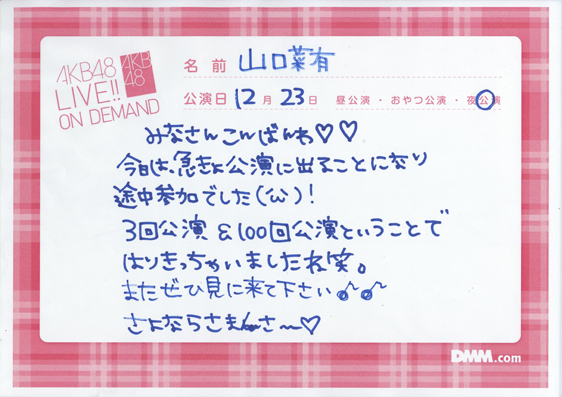 AKB48
LIVE!!
ON DEMAND
AKB
48
名前 山口菜有
公演日 12月 23日 昼公演・おやつ公演・夜公演
みなさんこんばんわ♡♡
今日は、急きょ公演に出ることになり
途中参加でした(ω)!
3回公演 &100回公演ということで
はりきっちゃいましたね笑。
またぜひ見に来て下さい♪♪
さよならさまんさ〜♡
DMM.com